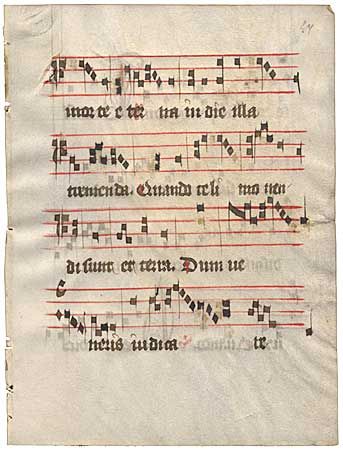 morte eter na in die illa
tremenda. Quando celi mo uen
di sunt et terra. Dum ue
neris iudica re